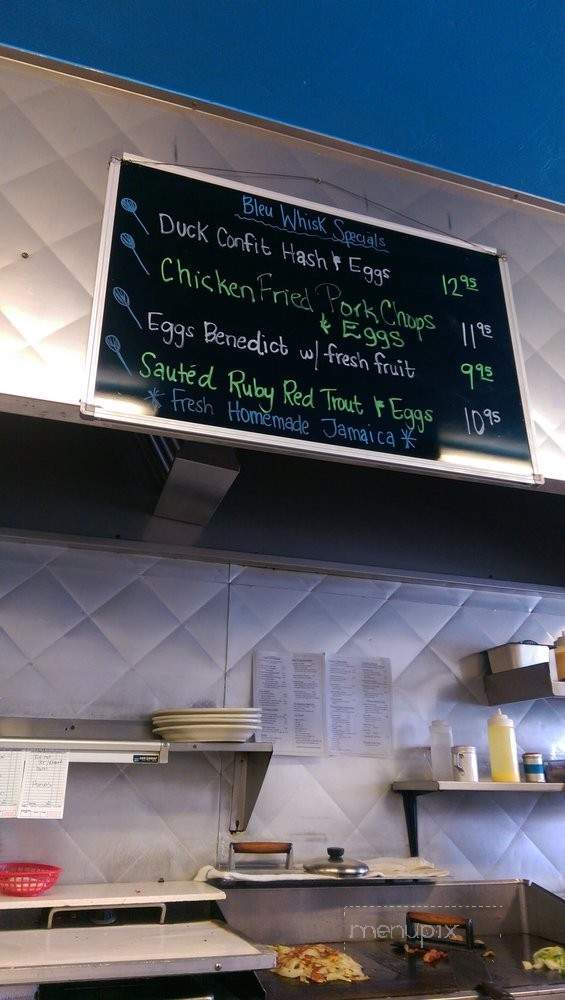 Bleu Whisk Specials
Duck Confit Hash & Eggs 12 95
Chicken Fried Pork Chops
& Eggs 11 95
Eggs Benedict w/ fresh fruit 9 95
Sautéd Ruby Red Trout & Eggs 10 95
* Fresh Homemade Jamaica *
menupix